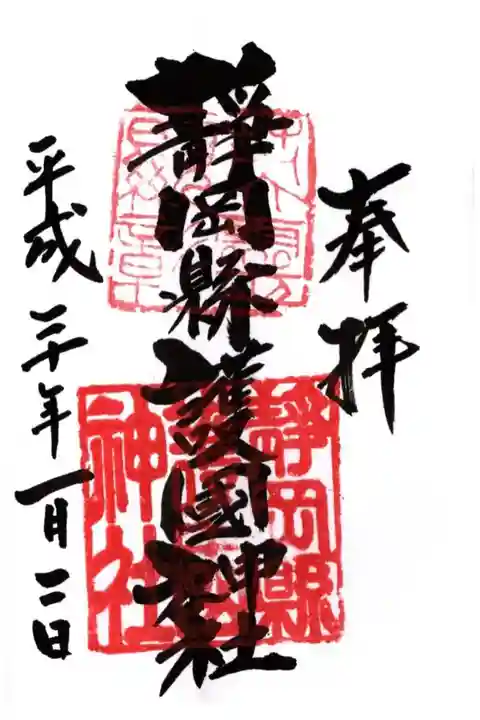 奉拝
靜岡縣護國神社
平成三十年一月二日
靜岡縣
神社